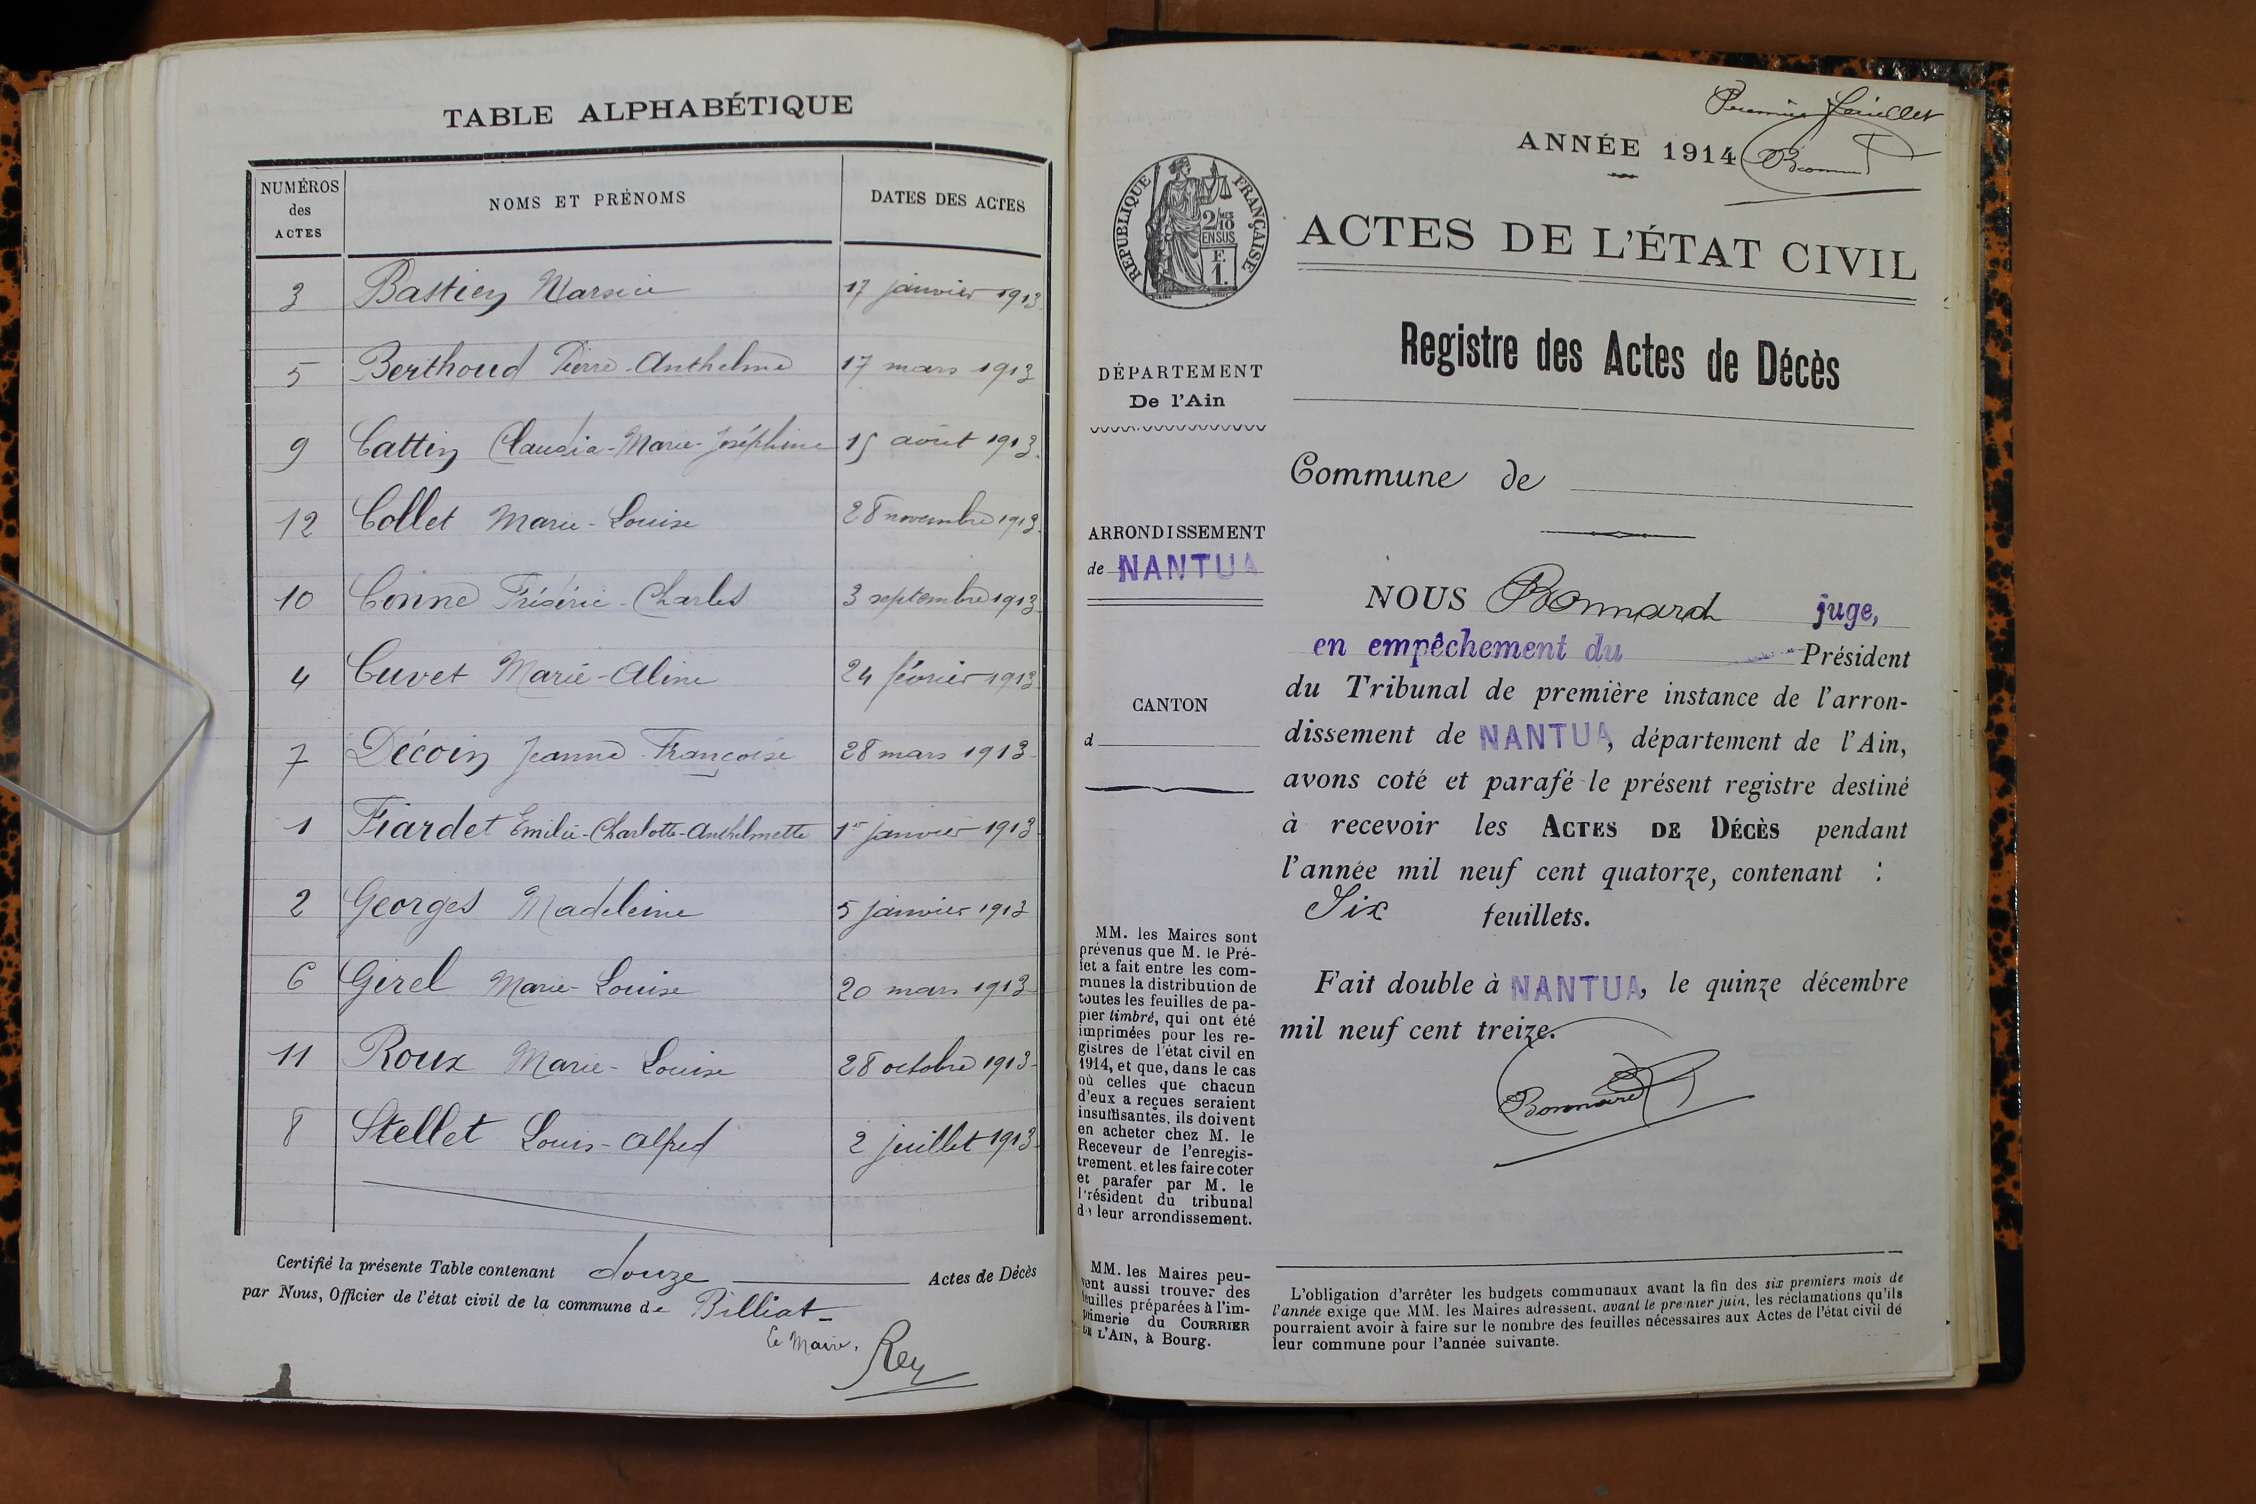 TABLE ALPHABÉTIQUE
NUMÉROS
des
ACTES
NOMS ET PRÉNOMS
DATES DES ACTES
3 Bastien 17 janvier 1913
5 Berthoud Pierre-Anthelme 17 mars 1913
9 Cattin Claudia-Marie-Joséphine 15 août 1913
12 Collet Marie-Louise 28 novembre 1913
10 Conne Frédéric-Charles 3 septembre 1913
4 Cuvet Marie-Aline 24 février 1913
7 Décoin Jeanne-Françoise 28 mars 1913
1 Fiardet Emilie-Charlotte-Anthelmette 1er janvier 1913
2 Georges Madeleine 5 janvier 1913
6 Girel Marie-Louise 20 mars 1913
11 Roux Marie-Louise 28 octobre 1913
8 Stellet Louis-Alfred 2 juillet 1913
Certifié la présente Table contenant douze Actes de Décès
par Nous, Officier de l'état civil de la commune de Billiat
Le Maire,
Rey
Premier feuillet
ANNÉE 1914
RÉPUBLIQUE FRANÇAISE
2/10
EN SUS
F.
1.
ACTES DE L'ÉTAT CIVIL
Registre des Actes de Décès
DÉPARTEMENT
De l'Ain
ARRONDISSEMENT
de NANTUA
CANTON
d
MM. les Maires sont
prévenus que M. le Pré-
fet a fait entre les com-
munes la distribution de
toutes les feuilles de pa-
pier timbré, qui ont été
imprimées pour les re-
gistres de l'état civil en
1914, et que, dans le cas
où celles que chacun
d'eux a reçues seraient
insuffisantes, ils doivent
en acheter chez M. le
Receveur de l'enregis-
trement, et les faire coter
et parafer par M. le
Président du tribunal
de leur arrondissement.
MM. les Maires peu-
vent aussi trouver des
feuilles préparées à l'im-
primerie du COURRIER
DE L'AIN, à Bourg.
Commune de
NOUS Bonnard juge,
en empêchement du Président
du Tribunal de première instance de l'arron-
dissement de NANTUA, département de l'Ain,
avons coté et parafé le présent registre destiné
à recevoir les ACTES DE DÉCÈS pendant
l'année mil neuf cent quatorze, contenant :
Six feuillets.
Fait double à NANTUA, le quinze décembre
mil neuf cent treize.
Bonnard
L'obligation d'arrêter les budgets communaux avant la fin des six premiers mois de
l'année exige que MM. les Maires adressent, avant le premier juin, les réclamations qu'ils
pourraient avoir à faire sur le nombre des feuilles nécessaires aux Actes de l'état civil de
leur commune pour l'année suivante.